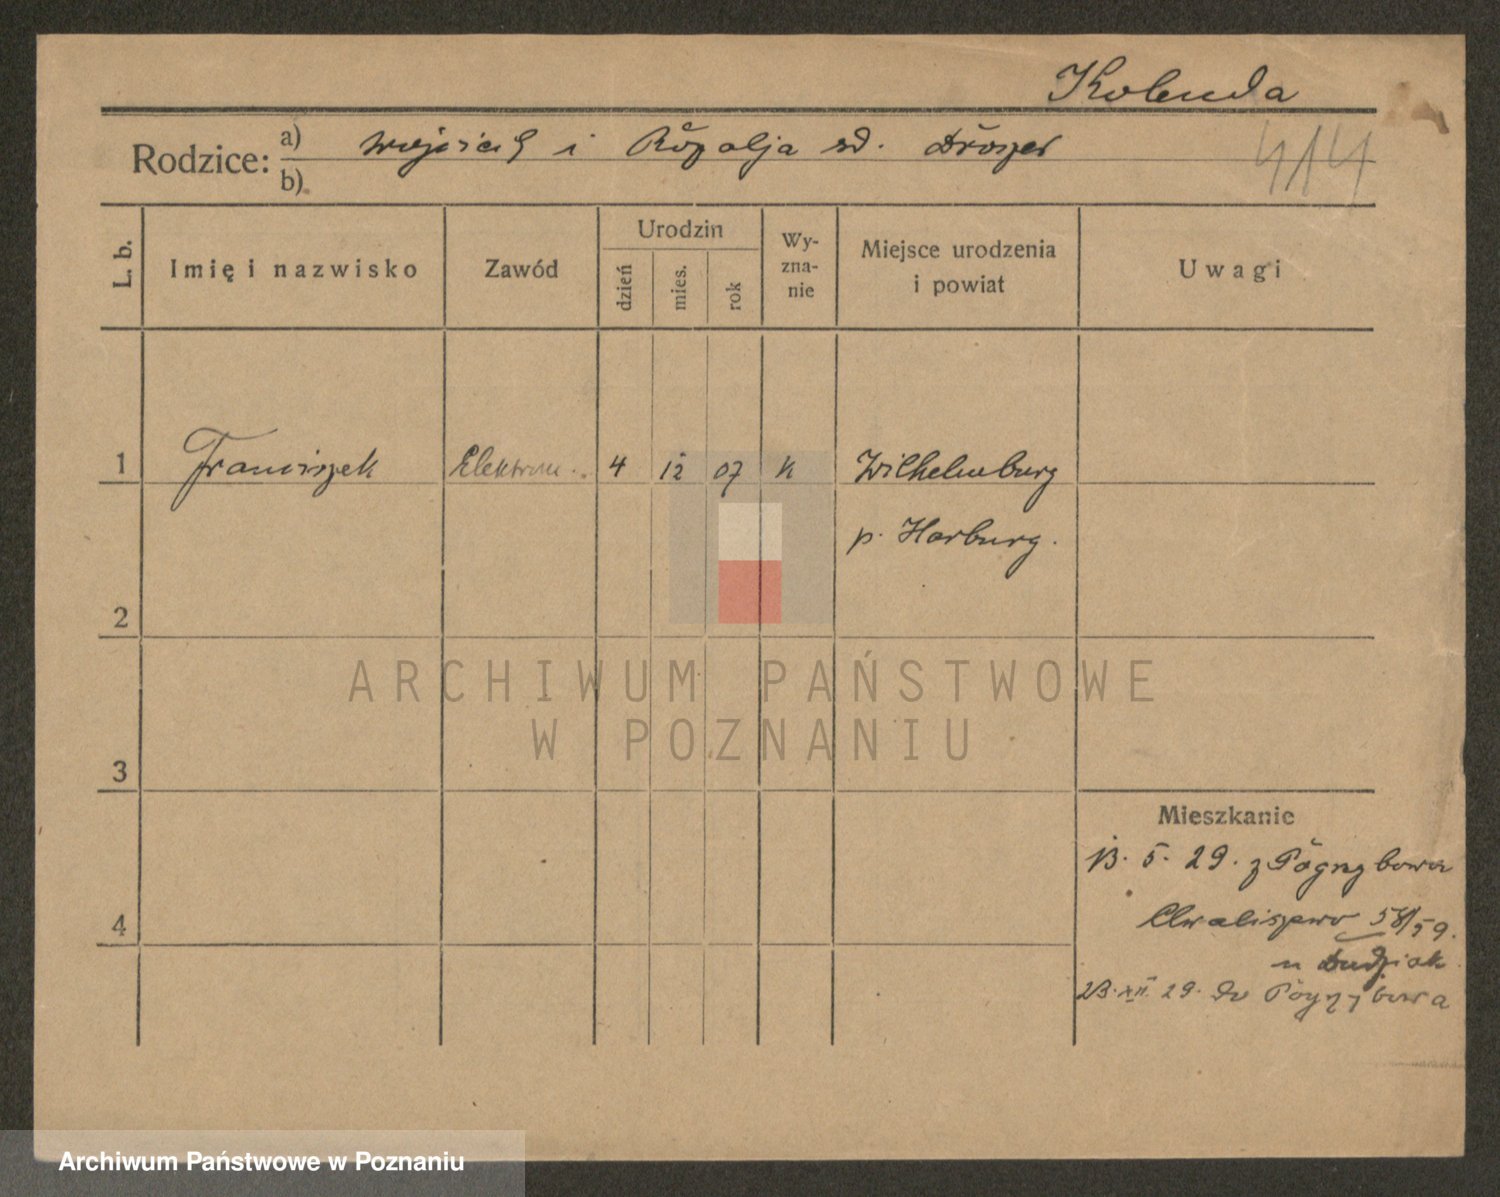 Kolenda
Rodzice: a) Wojciech i Rozalja rd. Drözer
b)
414
L. b.
Imię i nazwisko
Zawód
Urodzin
dzień
mies.
rok
Wy-
zna-
nie
Miejsce urodzenia
i powiat
Uwagi
1 Franciszek Elektrom. 4 12 07 K Wilhelmburg
p. Harburg.
2
3
4
Mieszkanie
13. 5. 29. z Pogrzybowa
Chwaliszewo 58/59.
u Dudziak
23. XII. 29. do Pogrzybowa
ARCHIWUM PAŃSTWOWE
W POZNANIU
Archiwum Państwowe w Poznaniu